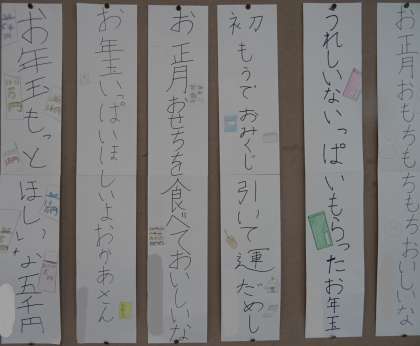 お正月おもちもちもちおいしいな
うれしいないっぱいもらったお年玉
初もうでおみくじ引いて運だめし
お正月おせちを食べておいしいな
お年玉いっぱいほしいよおかあさん
お年玉もっとほしいな五千円